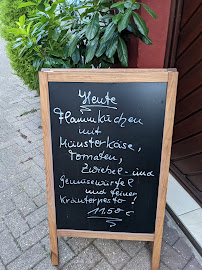 Heute
Flammkuchen
mit
Münsterkäse,
Tomaten,
Zwiebel- und
Gemüsewürfel
und feiner
Kräuterpesto!
11.50€